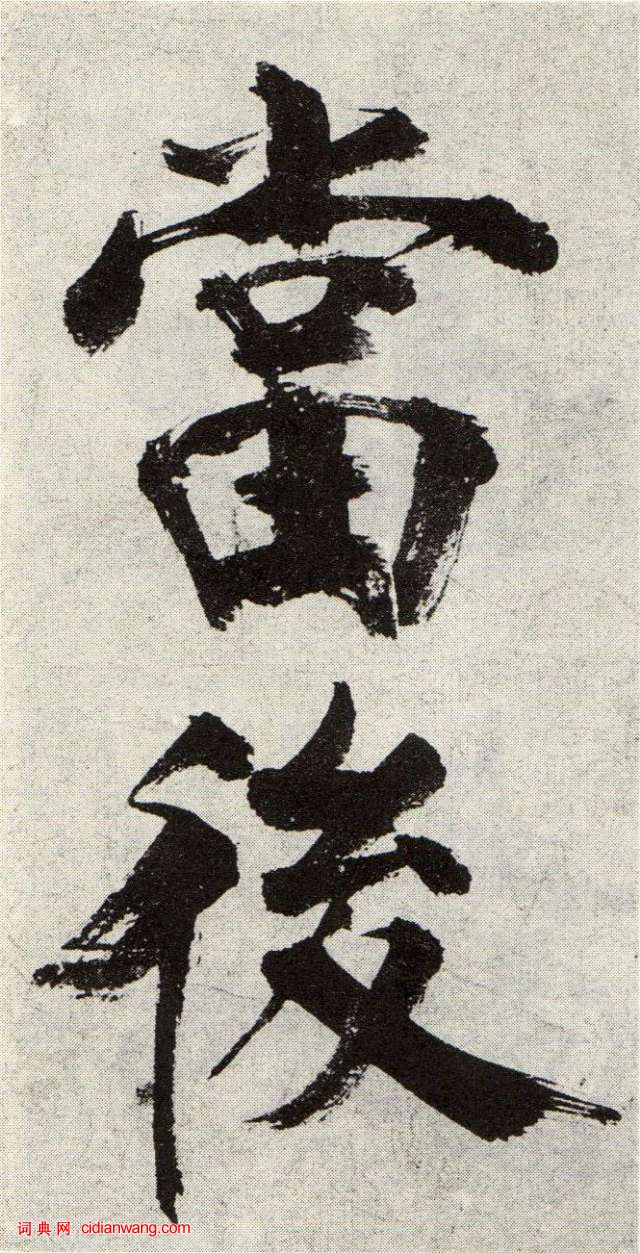 當
後
词典网 cidianwang.com